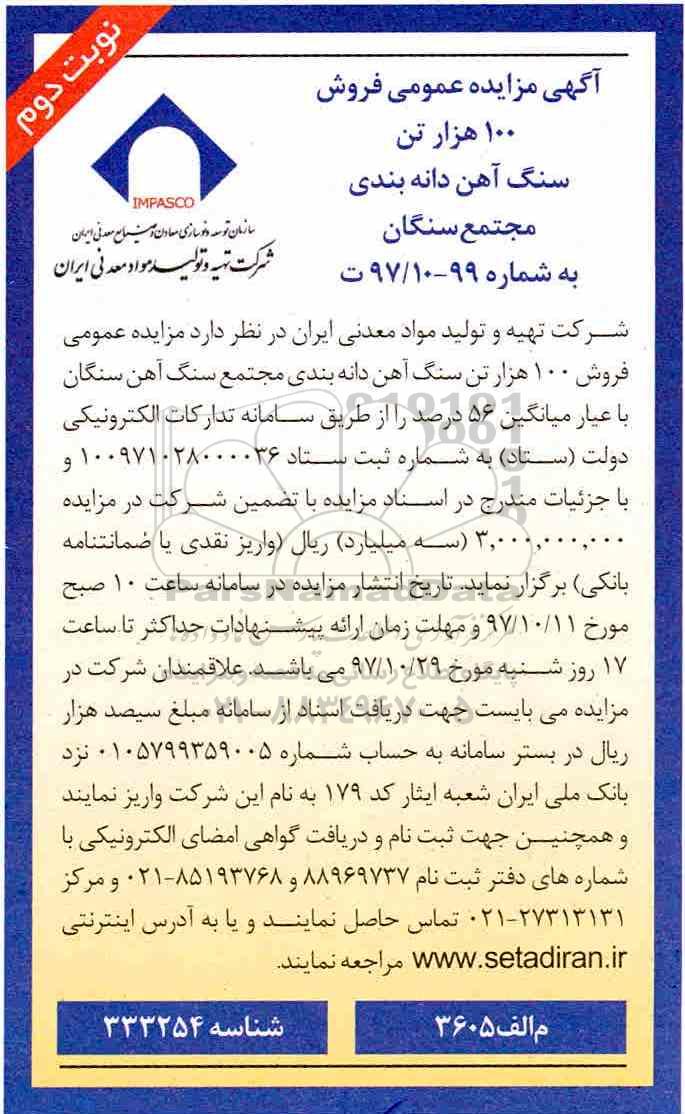 نوبت دوم
آگهی مزایده عمومی فروش
۱۰۰ هزار تن
سنگ آهن دانه بندی
مجتمع سنگان
به شماره ۹۹-۹۷/۱۰ ت
IMPASCO
سازمان توسعه و نوسازی معادن و صنایع معدنی ایران
شرکت تهیه و تولید مواد معدنی ایران
شرکت تهیه و تولید مواد معدنی ایران در نظر دارد مزایده عمومی
فروش ۱۰۰ هزار تن سنگ آهن دانه بندی مجتمع سنگ آهن سنگان
با عیار میانگین ۵۶ درصد را از طریق سامانه تدارکات الکترونیکی
دولت (ستاد) به شماره ثبت ستاد ۱۰۰۹۷۱۰۲۸۰۰۰۰۳۶ و
با جزئیات مندرج در اسناد مزایده با تضمین شرکت در مزایده
۳,۰۰۰,۰۰۰,۰۰۰ (سه میلیارد) ریال (واریز نقدی یا ضمانتنامه
بانکی) برگزار نماید. تاریخ انتشار مزایده در سامانه ساعت ۱۰ صبح
مورخ ۹۷/۱۰/۱۱ و مهلت زمان ارائه پیشنهادات حداکثر تا ساعت
۱۷ روز شنبه مورخ ۹۷/۱۰/۲۹ می باشد. علاقمندان شرکت در
مزایده می بایست جهت دریافت اسناد از سامانه مبلغ سیصد هزار
ریال در بستر سامانه به حساب شماره ۰۱۰۵۷۹۹۳۵۹۰۰۵ نزد
بانک ملی ایران شعبه ایثار کد ۱۷۹ به نام این شرکت واریز نمایند
و همچنین جهت ثبت نام و دریافت گواهی امضای الکترونیکی با
شماره های دفتر ثبت نام ۸۸۹۶۹۷۳۷ و ۸۵۱۹۳۷۶۸-۰۲۱ و مرکز
۰۲۱-۲۷۳۱۳۱۳۱ تماس حاصل نمایند و یا به آدرس اینترنتی
www.setadiran.ir مراجعه نمایند.
م الف ۳۶۰۵
شناسه ۳۳۳۲۵۴
ParsNamadData
۰۲۱-۸۸۳۴۹۶۷۰-۵